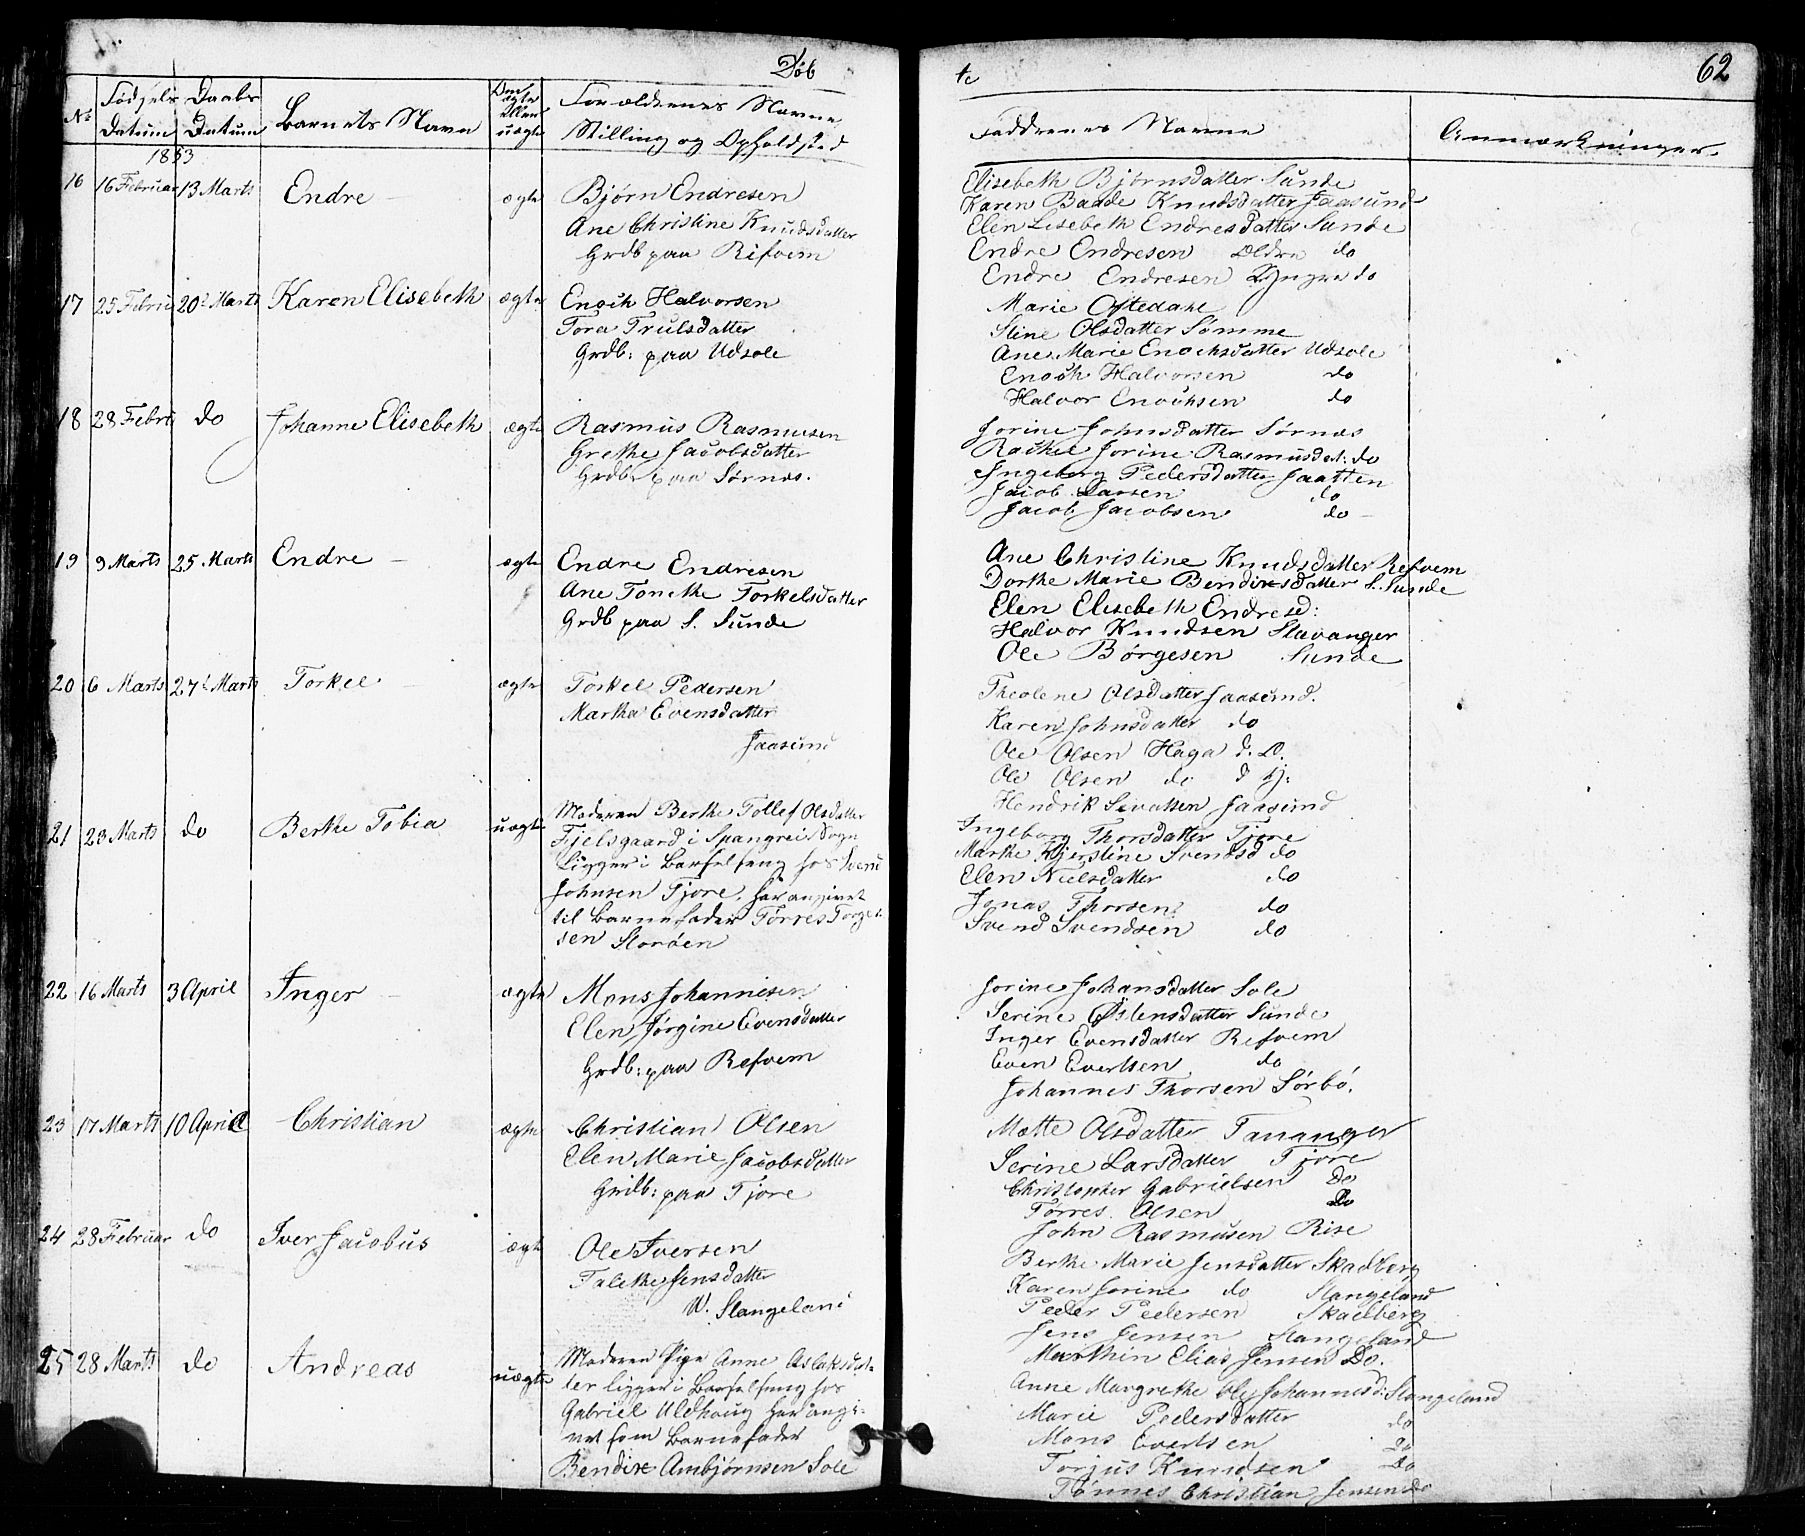 Døb
No
Fødsels Datum
Daabs Datum
Barnets Navn
Om ægte eller uægte
Forældrenes Navne
Stilling og Opholdsted
1853
16 16 Februar 13 Marts Endre ægte Bjørn Endresen
Ane Christine Knudsdatter
Grdb paa Refvem
17 25 Febru 20de Marts Karen Elisebeth ægte Enoch Halvorsen
Tora Trulsdatter
Grdb: paa Udsole
18 28 Febru do Johanne Elisebeth ægte Rasmus Rasmusen
Grethe Jacobsdatter
Grdb. paa Sørnæs.
19 9 Marts 25 Marts Endre ægte Endre Endresen
Ane Tonethe Torkelsdatter
Grdb paa S. Sunde
20 6 Marts 27de Marts Torkel ægte Torkel Pedersen
Martha Evensdatter
Jaasund
21 23 Marts do Berthe Tobia uægte Moderen Berthe Tollef Olsdatter
Fjelsgaard i Spangrei Sogn
Ligger i Barselseng hos Svend
Johnsen Tjore, har angivet
til Barnefader Tørres Torge
sen Storöen
22 16 Marts 3 April Inger ægte Mons Johannesen
Elen Jørgine Evensdatter
Grdb: paa Refvem
23 17 Marts 10 April Christian ægte Christian Olsen
Elen Marie Jacobsdatter
Grdb: paa Tjore
24 28 Februar do Iver Jacobus ægte Ole Iversen
Talethe Jensdatter
W. Stangeland
25 28 Marts do Andreas uægte Moderen Pige Anne Aslaksdat-
ter ligger i Barselseng hos
Gabriel Uldhoug har angi-
vet som Barnefader
Bendix Ambjørnsen Sole
te
62
Faddrenes Navne
Anmærkninger.
Elisebeth Bjørnsdatter Sunde
Karen Baade Knudsdatter Jaasund
Elen Lisebeth Endresdatter Sunde
Endre Endresen Ældre do
Endre Endresen Yngre do
Marie Oftedahl
Stine Olsdatter Sømme
Ane Marie Enochsdatter Udsole
Enoch Halvorsen do
Halvor Enochsen do
Jorine Johnsdatter Sørnæs
Rachel Jorine Rasmusdat: do
Ingeborg Pedersdatter Jaatten
Jacob Larsen do
Jacob Jacobsen do
Ane Christine Knudsdatter Refvem
Dorthe Marie Bendixsdatter S. Sunde
Elen Elisebeth Endresd:
Halvor Knudsen Stavanger
Ole Børgesen Sunde
Theolene Olsdatter Jaasund.
Karen Johnsdatter do
Ole Olsen Haga d. Æ.
Ole Olsen do d Y:
Hendrik Sivatsen Jaasund
Ingeborg Thorsdatter Tjore
Marthe Kjerstine Svendsd do
Elen Nielsdatter do
Jonas Thorsen do
Svend Svendsen do
Jorine Johansdatter Sole
Serine Østensdatter Sunde
Inger Evensdatter Refvem
Even Evertsen do
Johannes Thorsen Sørbö.
Mætte Olsdatter Tananger
Serine Larsdatter Tjore
Christopher Gabrielsen Do
Tørres Olsen Do
John Rasmusen Rise
Berthe Marie Jensdatter Skadberg
Karen Jorine do Stangeland
Peder Pedersen Skadberg
Jens Jensen Stangeland
Marthin Elias Jensen Do.
Anne Margrethe Johannesd: Stangeland
Marie Pedersdatter do
Mons Evertsen Do
Torjus Knudsen Do
Tønnes Christian Jensen do